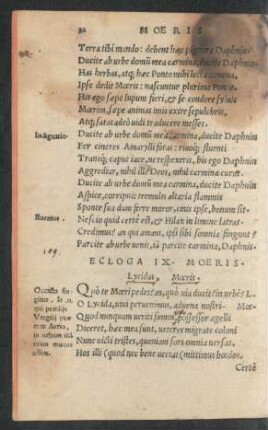 82 MOERIS
Terra tibi mando: debent hæc pignora Daphnin.
Ducite ab urbe domũ mea carmina, ducite Daphnin
Has herbas, atq; hæc Ponto mihi lecta venena,
Ipse dedit Mœris: nascuntur plurima Ponto.
His ego sæpe lupum fieri, & se condere syluis
Mœrim, sæpe animas imis exire sepulchris,
Atq; satas alio uidi traducere messes.
Ducite ab urbe domũ mea carmina, ducite Daphnin
Fer cineres Amarylli foras: riuoq; fluenti
Transq; caput iace, ne respexeris, his ego Daphnin
Aggrediar, nihil ille Deos, nihil carmina curat.
Ducite ab urbe domũ mea carmina, ducite Daphnin
Aspice, corripuit tremulis altaria flammis
Sponte sua dum ferre moror, cinis ipse, bonum sit.
Nescio quid certè est, & Hilax in limine latrat.
Credimus? an qui amant, ipsi sibi somnia fingunt?
Parcite ab urbe uenit, iã parcite carmina, Daphnis.
ECLOGA IX. MOERIS.
Lycidas, Mœris.
Quò te Mœri pedes? an, quò uia ducit? in urbẽ? L.
O Lycida, uiui peruenimus, aduena nostri Mœ.
Quod nunquam veriti sumus, possessor agelli
Diceret, hæc mea sunt, veteres migrate coloni
Nunc uicti tristes, quoniam fors omnia versat.
Hos illi (quod nec bene vertat) mittimus hœdos.
Certè